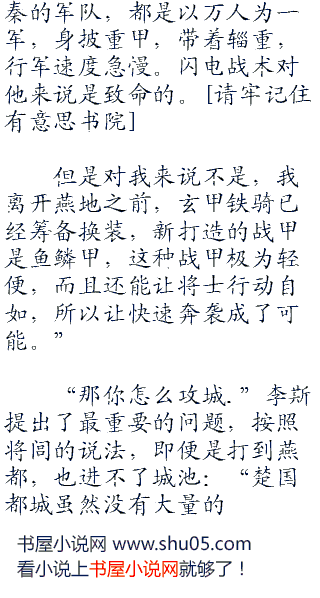 秦的军队，都是以万人为一
军，身披重甲，带着辎重，
行军速度急慢。闪电战术对
他来说是致命的。[请牢记住
有意思书院]
但是对我来说不是，我
离开燕地之前，玄甲铁骑已
经筹备换装，新打造的战甲
是鱼鳞甲，这种战甲极为轻
便，而且还能让将士行动自
如，所以让快速奔袭成了可
能。”
“那你怎么攻城.”李斯
提出了最重要的问题，按照
将闾的说法，即便是打到燕
都，也进不了城池：“楚国
都城虽然没有大量的
书屋小说网 www.shu05.com
看小说上书屋小说网就够了！